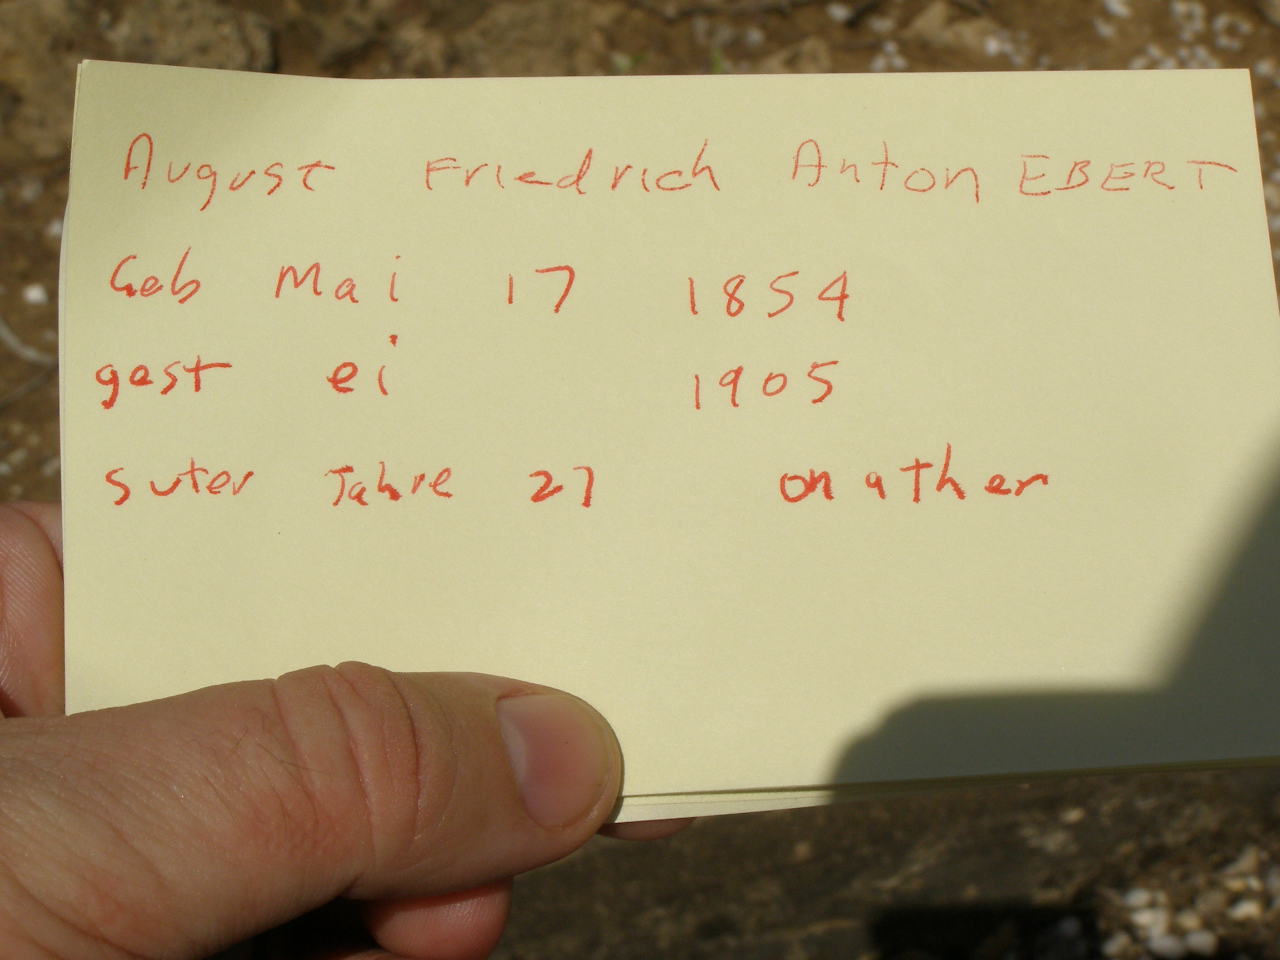 August Friedrich Anton EBERT
Geb Mai 17 1854
gest ei 1905
suter Jahre 27 on a then